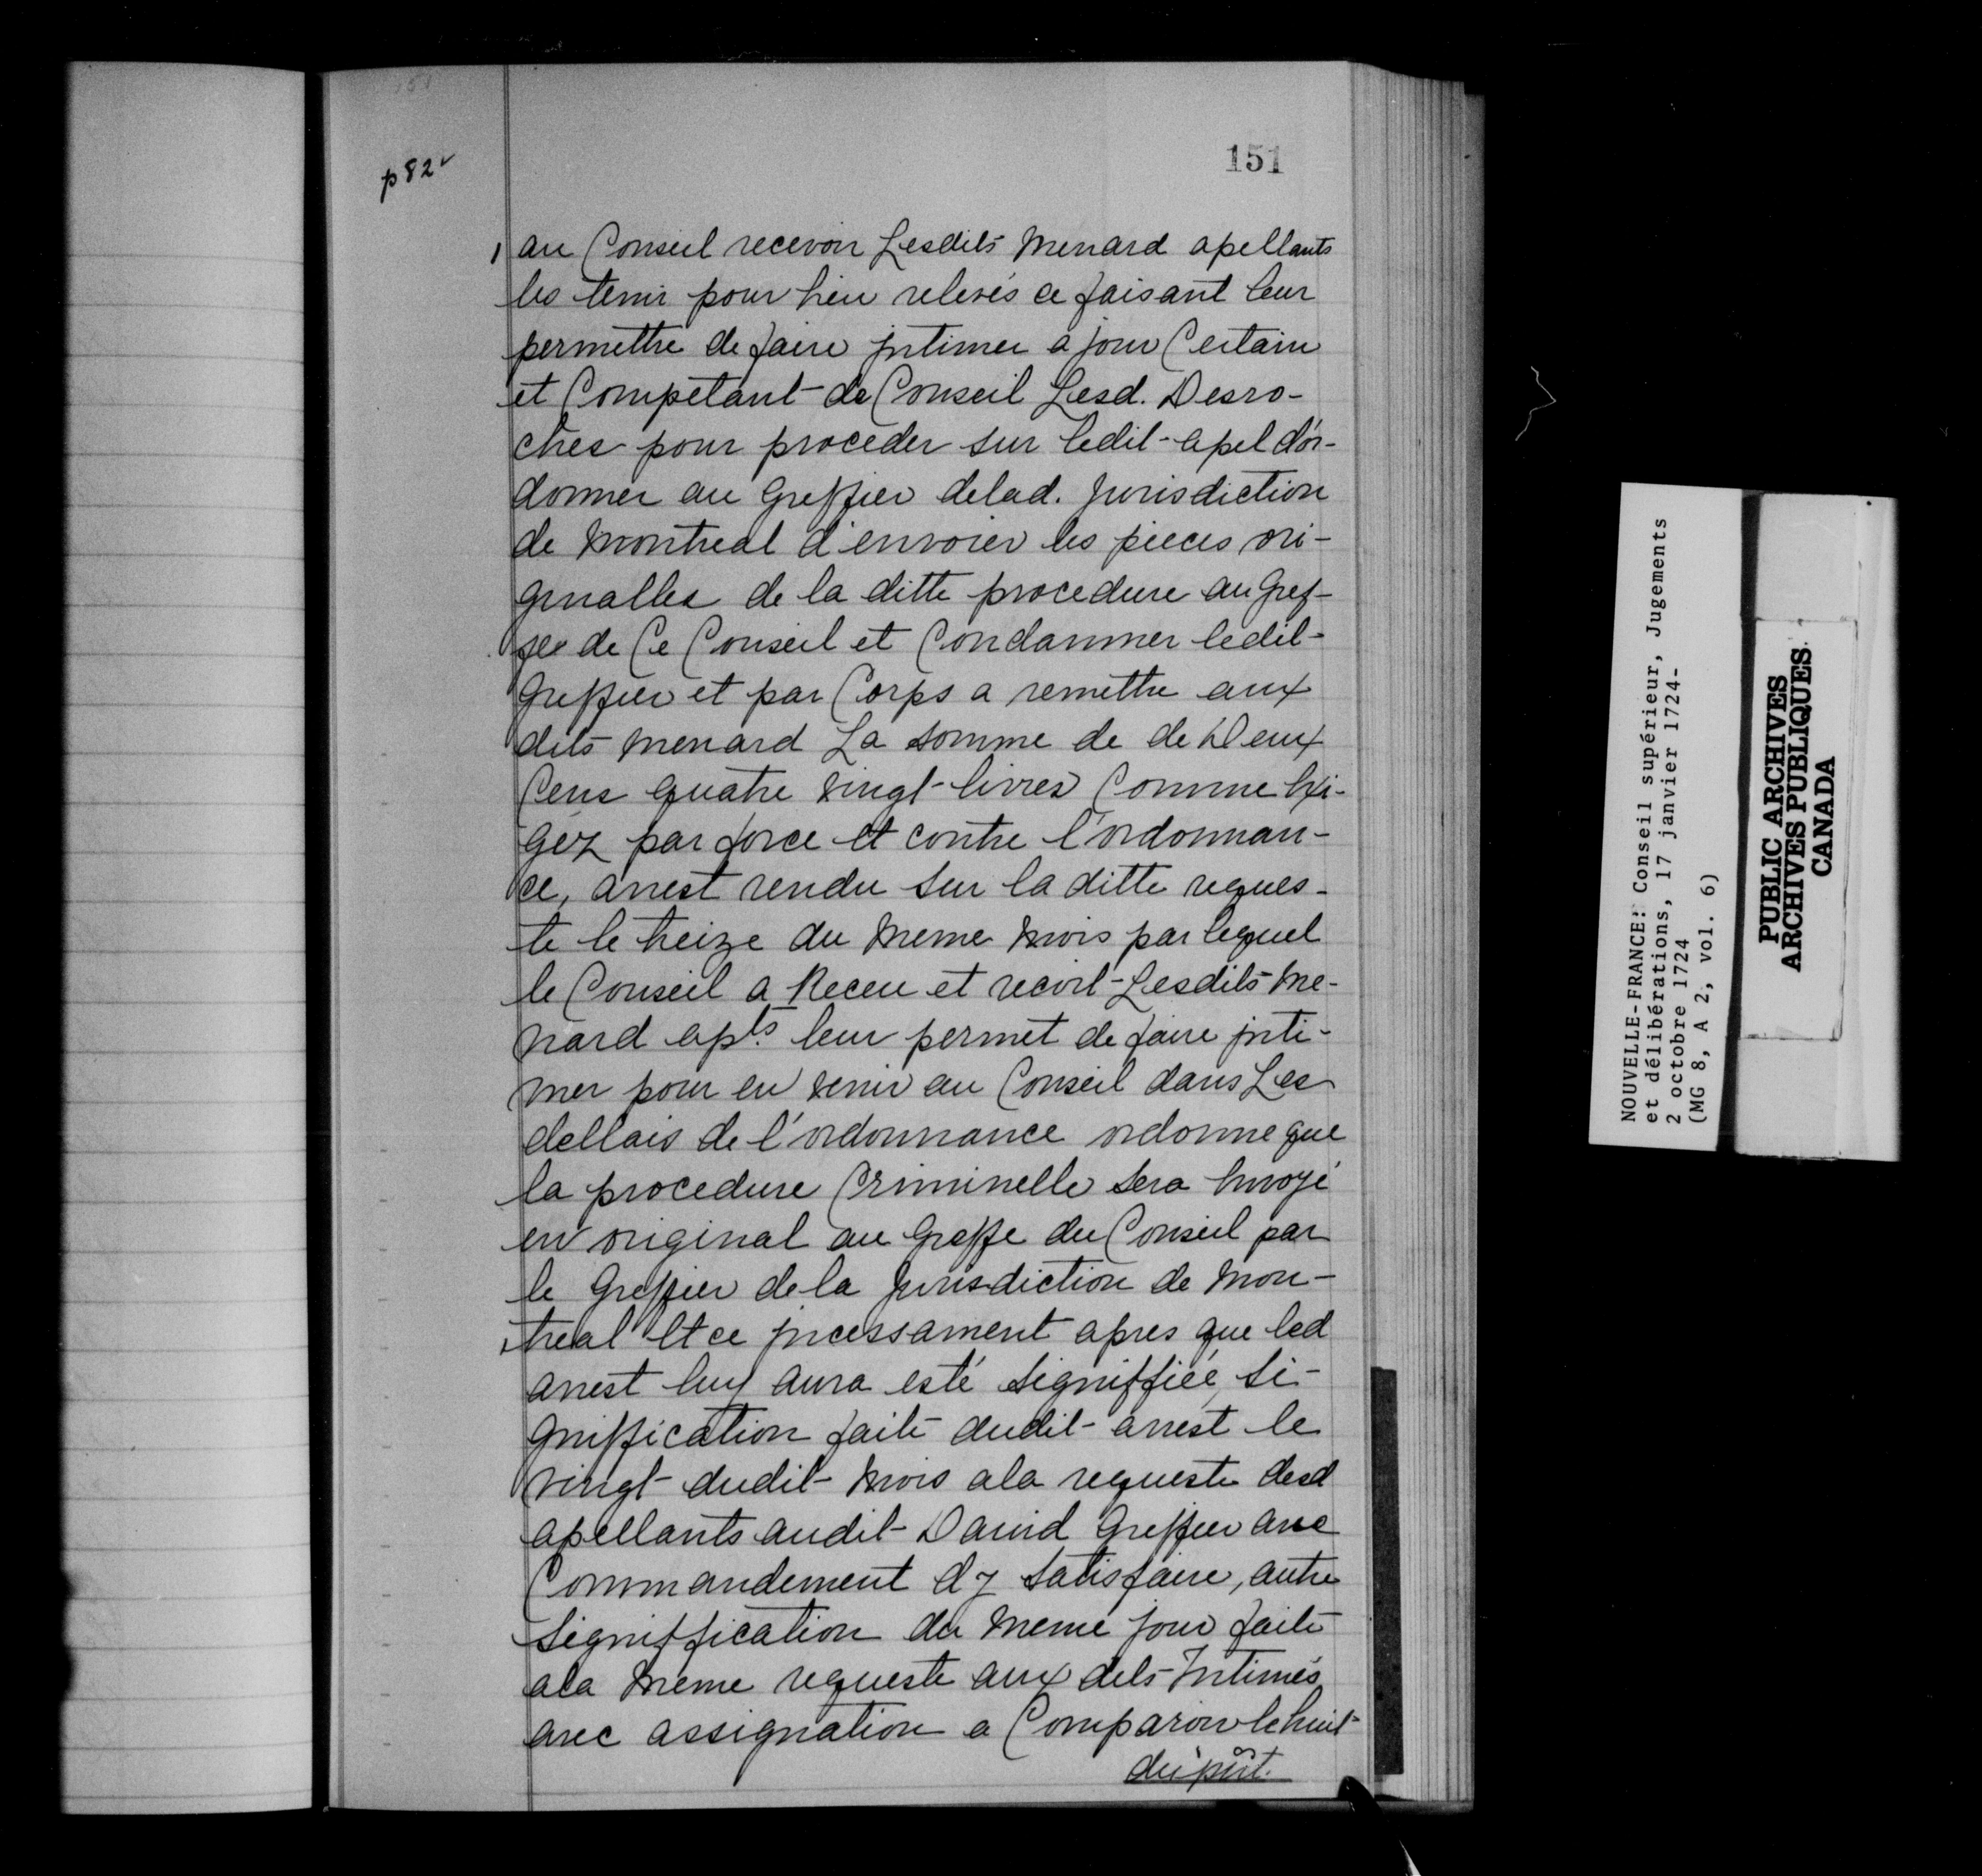 151
p 82v
au Conseil recevoir Lesdits Menard apellants
les tenir pour bien relevés ce faisant leur
permettre de faire jntimer a jour Certain
et Compétant de Conseil Lesd. Desro-
ches pour proceder sur ledit apel d'or-
donner au Greffier delad. Jurisdiction
de Montreal d'envoier les pieces ori-
ginalles de la ditte procedure au Gref-
fe de Ce Conseil et Condamner ledit
Greffier et par Corps a remettre aux
dits Menard La somme de de Deux
Cens quatre vingt livres Comme Exi-
géz par force et contre l'ordonnan-
ce, arrest rendu sur la ditte reques-
te le treize du Meme Mois par lequel
le Conseil a Receu et recoit Lesdits Me-
nard apts. leur permet de faire jnti-
mer pour en venir au Conseil dans Les
dellais de l'ordonnance ordonne que
la procedure Criminelle sera Envoyé
en original au Greffe du Conseil par
le Greffier de la Jurisdiction de Mon-
treal Et ce jncessament apres que led
arrest luy aura esté signiffiée, si-
gniffication faite dudit arrest le
vingt dudit Mois ala requeste desd
apellants audit David Greffier avec
Commandement dy satisfaire, autre
signiffication du Meme jour faite
ala Meme requeste aux dits Intimés
avec assignation a Comparoir le huit
du pnt.
NOUVELLE-FRANCE: Conseil supérieur, Jugements
et délibérations, 17 janvier 1724-
2 octobre 1724
(MG 8, A 2, vol. 6)
PUBLIC ARCHIVES
ARCHIVES PUBLIQUES
CANADA